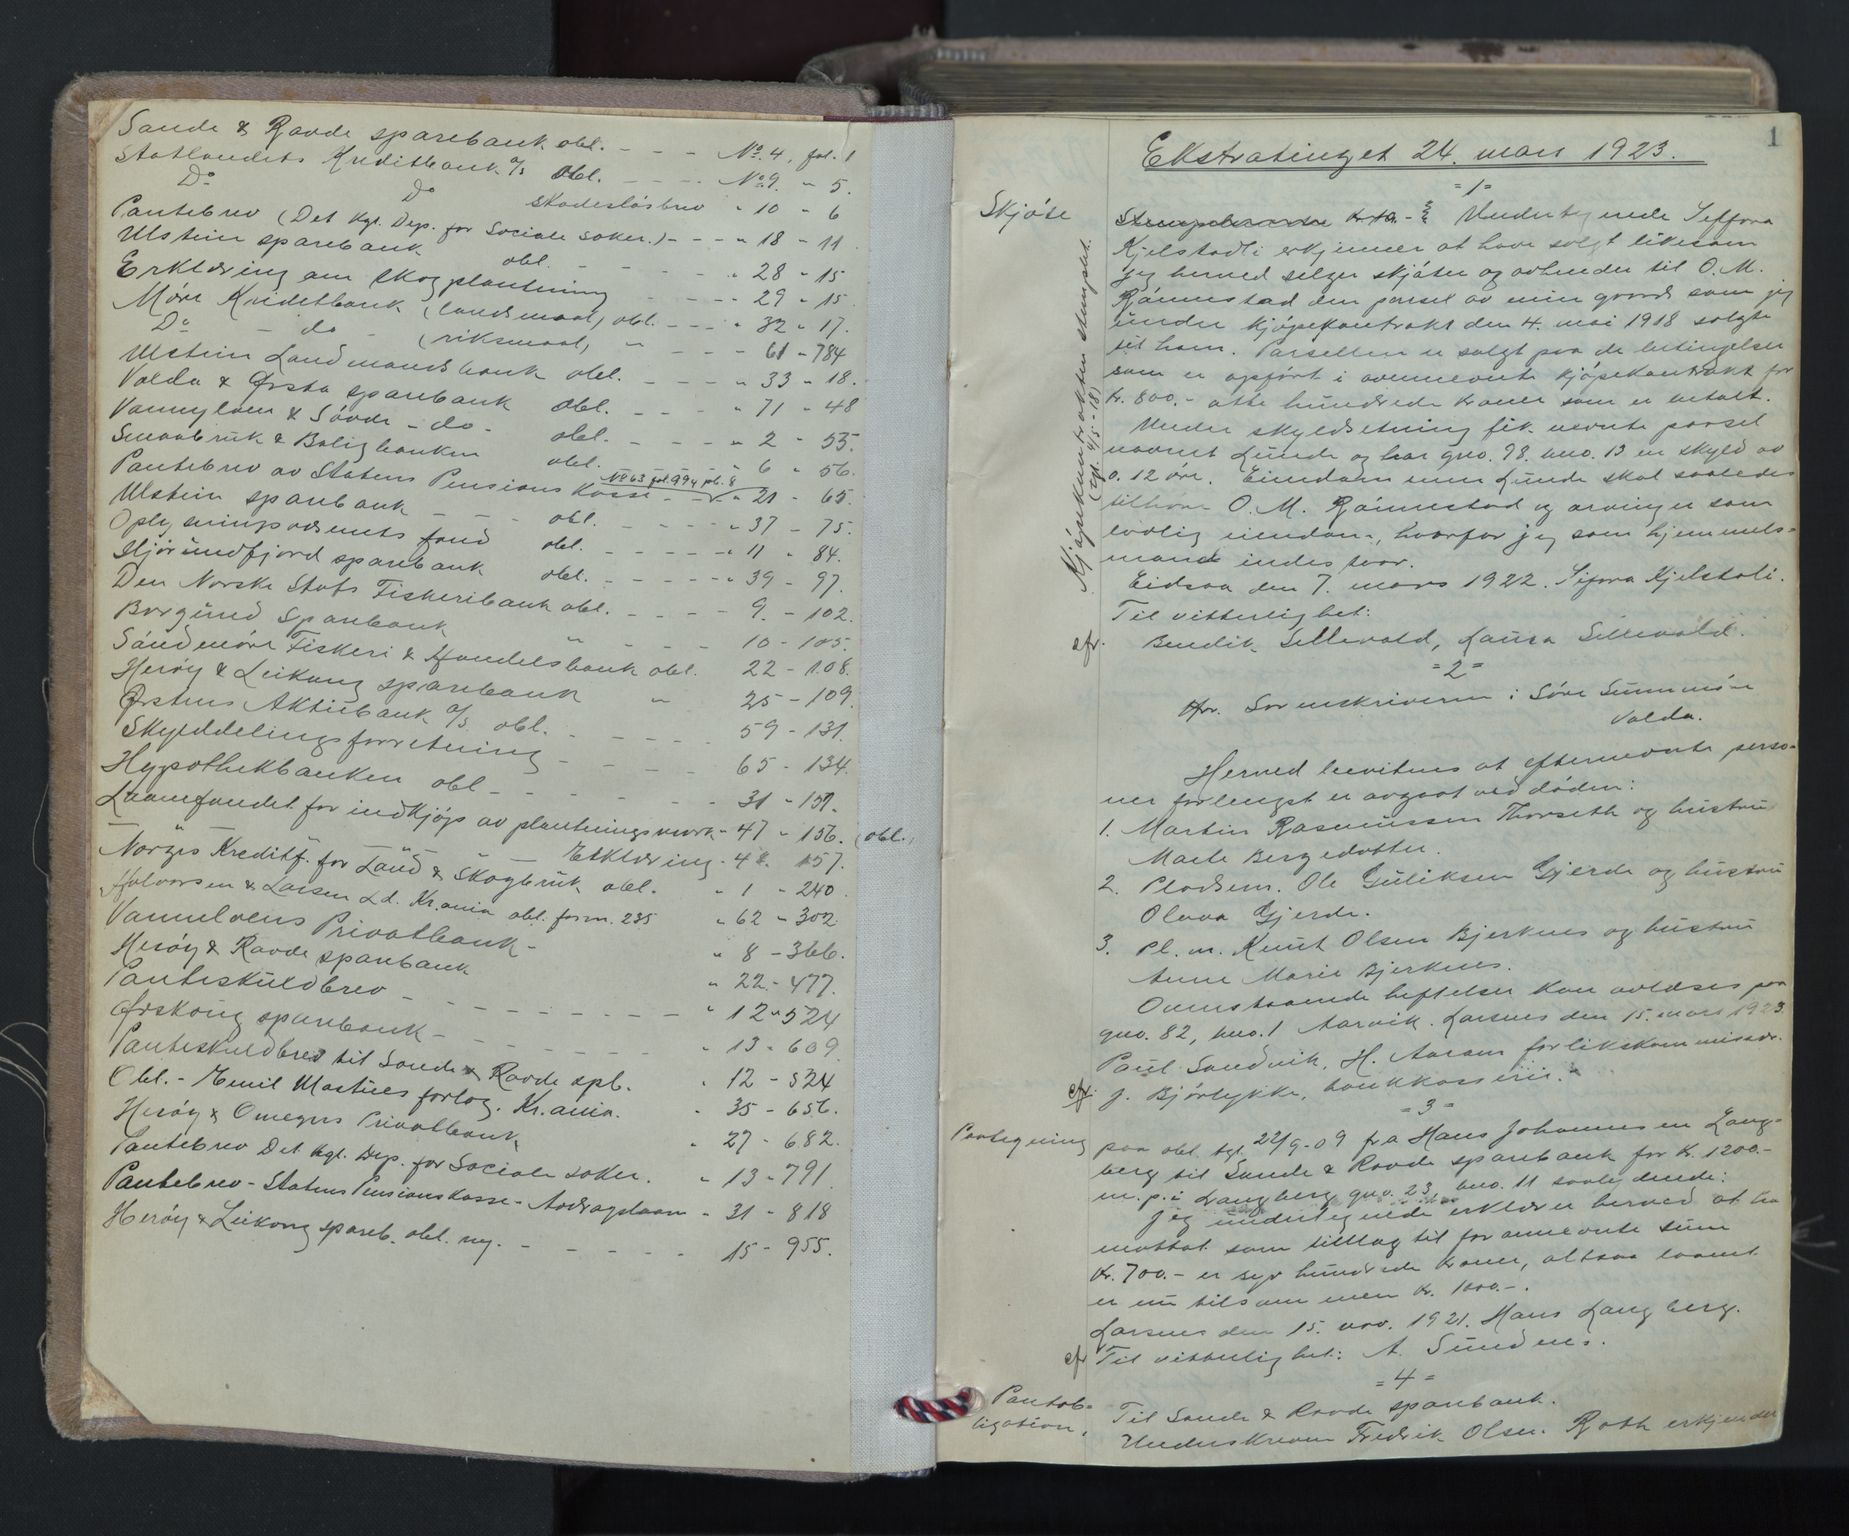 Sande & Rovde sparebank obl. - - - No. 4, fol. 1
Statlandets Kreditbank A/S obl. - - - No. 9. " 5.
Do Do skadesløsbrev " 10 - 6
Pantebrev (Det kgl. Dep. for Sociale saker.) - - - " 18 - 11.
Ulstein sparebank obl. - - - " 28 - 15
Erklæring om skogplantning - - - " 29 " 15.
Møre Kreditbank (landsmaal) obl. - - - " 32 " 17.
Do - do - (riksmaal) " - - 61 - 784
Ulstein Landmandsbank obl. - - - " 33 " 18.
Volda & Ørsta sparebank obl. - - - " 71 - 48
Vannylven & Søvde - do - obl. - - - " 2 - 53.
Smaabruk & Boligbanken obl. - - " 6 " 56.
Pantebrev av Statens Pensionskasse - - " 21 - 65.
No 63 fol. 994 pb. 8
Ulstein sparebank - - - obl. - - - " 37 - 75.
Oplysningsvæsenets fond obl. - - - " 11 " 84.
Hjørundfjord sparebank obl. - - - " 39 - 97.
Den Norske Stats Fiskeribank obl. - - - 9. - 102.
Borgund Sparebank " - - - 10 - 105.
Søndmøre Fiskeri & Handelsbank obl. 22 - 108.
Herøy & Leikong sparebank " 25 - 109.
Ørstens Aktiebank A/S obl. - - - 59 - 131.
Skylddelingsforretning - - - 65 - 134.
Hypothekbanken obl - - - 31 - 151.
Laanefondet for indkjøp av plantningsverk - 47 - 156. (obl.)
Erklæring - 48. 157.
Norges Kreditf. for Land & Skogbruk obl. " 1 - 240.
Halvorsen & Larsen Ld. Kr.ania obl. form. 235 " 62 " 302.
Vannelvens Privatbank - " 8 - 366.
Herøy & Rovde sparebank " 22. - 477.
Panteskuldbrev - - - " 12 " 524
Ørskoug sparebank - - - " 13 - 609.
Panteskuldbrev til Sande & Rovde spb. " 12 - 524
Obl. - Emil Mostues forlag. Kr.ania. " 35 - 656.
Herøy & Omegns Privatbank " 27 - 682.
Pantebrev Det kgl. Dep. for Sociale saker. " 13 - 791.
Pantebrev - Statens Pensionskasse - Avdragslaan " 31 - 818
Herøy & Leikong spareb. obl. ny. - - - 15 - 955.
1
Ekstratinget 24. mars 1923.
= 1 =
Skjøte
Kjøpekontrakten stemplet.
(tgl. 4/5 - 18)
Undertegnede Seffora
Kjelstadli erkjenner at have solgt likesom
jeg herved selger skjøter og avhender til O. M.
Rønnestad den parsel av min gaard som jeg
under kjøpekontrakt den 4. mai 1918 solgte
til ham. Parsellen er solgt paa de betingelser
som er opført i ovennevnte kjøpekontrakt for
kr. 800.- otte hundrede kroner som er betalt.
Under skyldsetning fik nevnte parsel
navnet Lunde og har gno. 98. bno. 13 en skyld av
0. 12 øre. Eiendommen Lunde skal saaledes
tilhøre O. M. Rønnestad og arvinger som
lovlig eiendom, hvorfor jeg som hjemmels=
mand indestaar.
Eidsaa den 7. mars 1922. Sifora Kjelstali.
Til vitterlighet:
cfr. Bendik Sellevold, Laura Sillevold.
= 2 =
Hr. Sorenskriveren i Søre Sunnmøre
Volda.
Herved bevitnes at eftternevnte perso=
ner forlengst er avgaat ved døden:
1. Martin Rasmussen Thorseth og hustru
Marte Bergedotter.
2. Pladsem. Ole Guliksen Gjerde og hustru
Olava Gjerde.
3. Pl. m. Knut Olsen Bjerknes og hustru
Anne Marie Bjerknes.
Ovenstaaende heftelser kan avlæses paa
gno. 82, bno. 1 Aarvik. Larsnes den 15. mars 1923.
Paul Sandvik, H. Aaram forlikskommissær.
cfr. J. Bjørlykke, bankkasserer.
= 3 =
Paategning
paa obl. tgl. 22/9-09 fra Hans Johannessen Lang=
berg til Sande & Rovde sparebank for kr. 1200.-
m. p. i Langberg gno. 23, bno. 11 saalydende:
Jeg undertegnede erklærer herved at ha
mottat som tillæg til forannevnte sum
kr. 700.- er syv hundrede kroner, altsaa laanet
er nu tilsammen kr. 1000.-.
Larsnes den 15. nov. 1921. Hans Langberg.
cfr Til vitterlighet: A. Sundnes.
= 4 =
Pantob=
ligation,
Til Sande & Rovde sparebank.
Underskreven Fredrik Olsen Roth erkjender